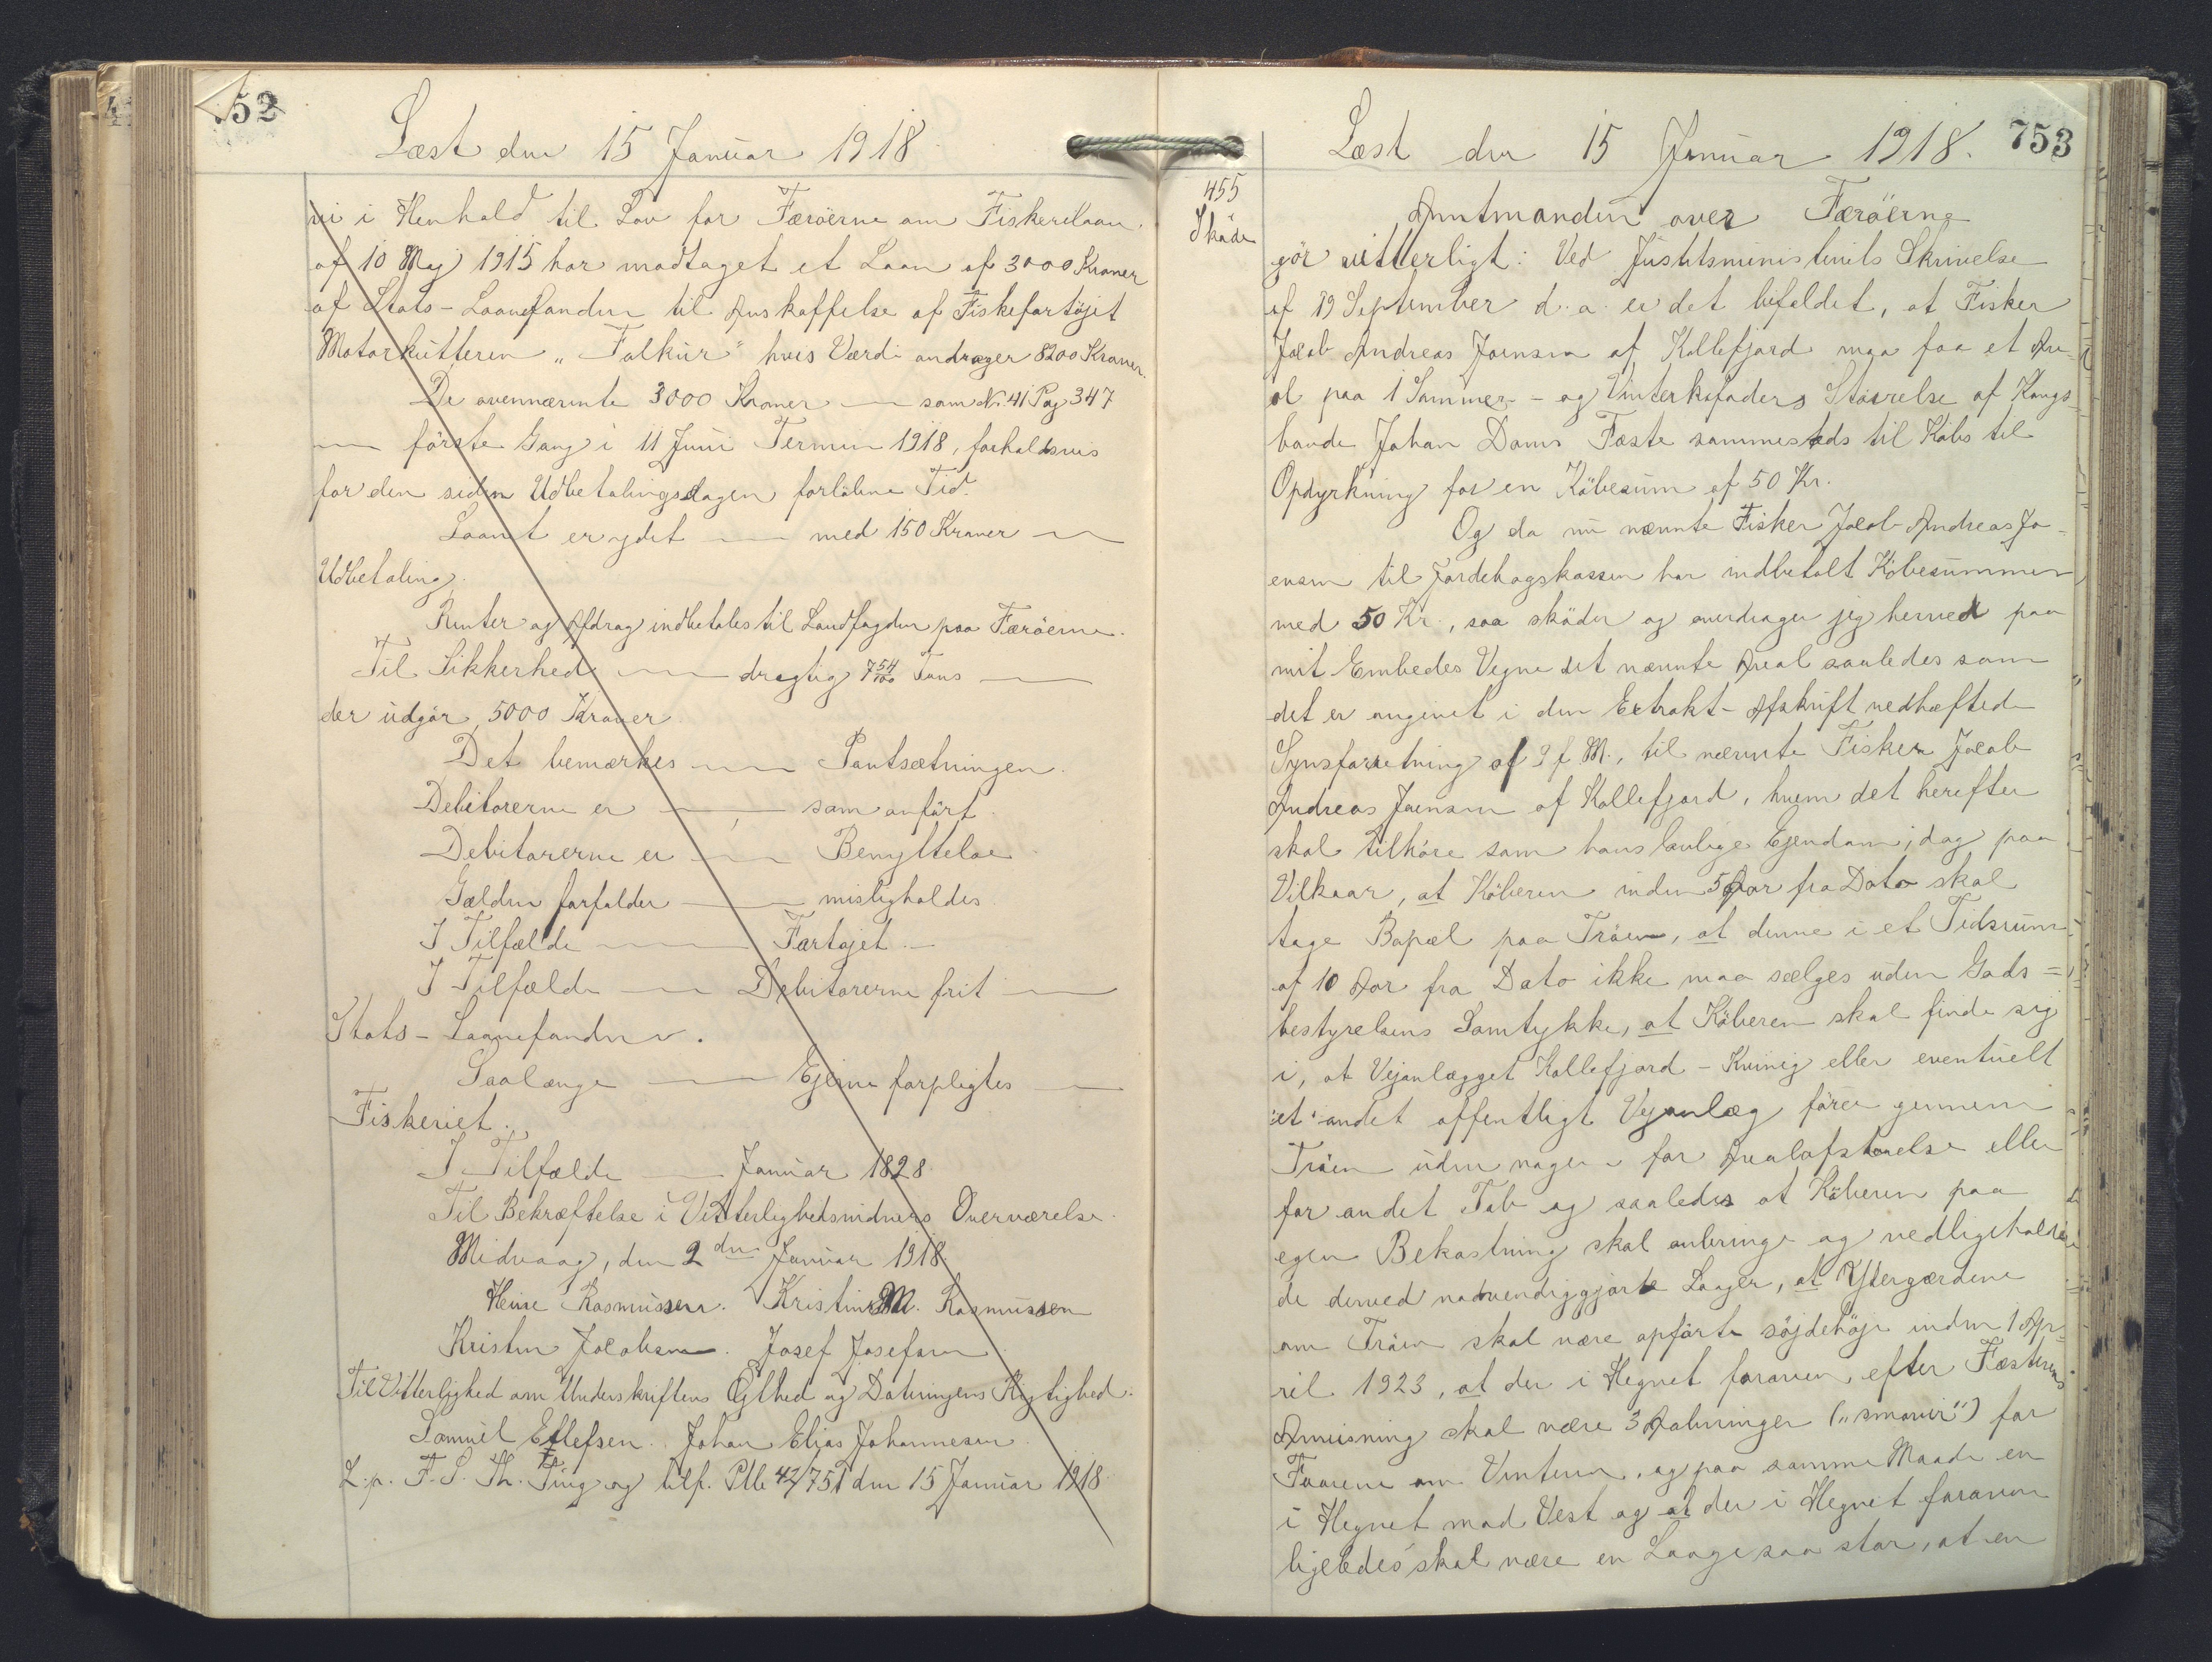 52
Læst den 15 Januar 1918.
vi i Henhold til Lov for Færöerne om Fiskerilaan
af 10 Maj 1915 har modtaget et Laan af 3000 Kroner
af Stats-Laanefonden til Anskaffelse af Fiskefartöjet
Motorkutteren "Falkur" hvis Værdi andrager 8200 Kroner.
De ovennævnte 3000 Kroner — som No. 41 Pag 347
— förste Gang i 11 Juni Termin 1918, forholdsvis
for den siden Udbetalingsdagen forlöbne Tid.
Laanet er ydet — med 150 Kroner —
Udbetaling.
Renter og Afdrag indbetales til Landfogden paa Færöerne.
Til Sikkerhed — drægtig 7 54/100 Tons —
der udgör 5000 Kroner.
Det bemærkes — Pantsætningen.
Debitorerne er — som anfört.
Debitorerne er — Benyttelse
Gælden forfalder — misligholdes.
I Tilfælde — Fartöjet. —
I Tilfælde — Debitorerne frit —
Stats-Laanefonden.
Saalænge — Ejerne forpligtes —
Fiskeriet.
I Tilfælde — Januar 1828.
Til Bekræftelse i Vitterlighedsvidners Overværelse.
Midvaag, den 2den Januar 1918
Heine Rasmussen. Kristine M. Rasmussen
Kristen Jacobsen. Josef Josefsen
Til Vitterlighed om Underskriftens Ægthed og Dateringens Rigtighed.
Samuel Ellefsen. Johan Elias Johannesen
L. p. F. S. Th. Ting og tilf. Ptb 42/751 den 15 Januar 1918.
753
Læst den 15 Januar 1918.
455
Sköde
Amtmanden over Færöerne
gör vitterligt: Ved Justitsministeriets Skrivelse
af 19 September d. a. er det bifaldet, at Fisker
Jacob Andreas Joensen af Kollefjord maa faa et Are-
al paa 1 Sommer- og Vinterkofoders Störrelse af Kongs-
bonde Johan Dams Fæste sammesteds til Köbs til
Opdyrkning for en Köbesum af 50 Kr.
Og da nu nævnte Fisker Jacob Andreas Jo-
ensen til Jordebogskassen har indbetalt Köbesummen
med 50 Kr., saa sköder og overdrager jeg herved paa
mit Embedes Vegne det nævnte Areal saaledes som
det er angivet i den Extrakt-Afskrift vedhæftede
Synsforretning af 9 f. M., til nævnte Fisker Jacob
Andreas Joensen af Kollefjord, hvem det herefter
skal tilhöre som hans lovlige Ejendom, dog paa
Vilkaar, at Köberen inden 5 Aar fra Dato skal
tage Bopæl paa Tröen, at denne i et Tidsrum
af 10 Aar fra Dato ikke maa sælges uden Gods=
bestyrelsens Samtykke, at Köberen skal finde sig
i, at Vejanlægget Kollefjord - Kvivig eller eventuelt
et andet offentligt Vejanlæg förer gennem
Tröen uden nogen for Arealafstaaelse eller
for andet Tab og saaledes at Köberen paa
egen Bekostning skal anbringe og vedligeholde
de derved nødvendiggjorte Laager, at Ydergærdene
om Tröen skal være opförte söjdehöje inden 1 Ap-
ril 1923, at der i Hegnet foroven, efter Fæsterens
Anvisning skal være 3 Aabninger ("smovir") for
Faarene om Vinteren, og paa samme Maade en
i Hegnet mod Vest og at der i Hegnet foroven
ligeledes skal være en Laage saa stor, at en